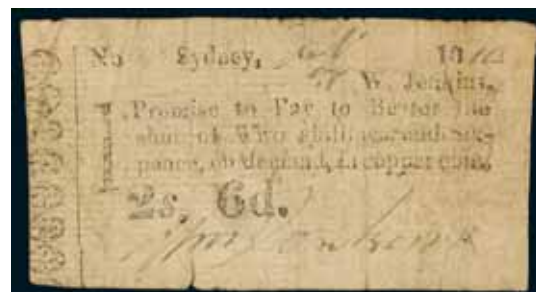 No Sydney, 18
W. Jenkins,
I Promise to Pay to Bearer the
sum of Two shillings and six-
pence, on demand, in copper coin.
2s. 6d.